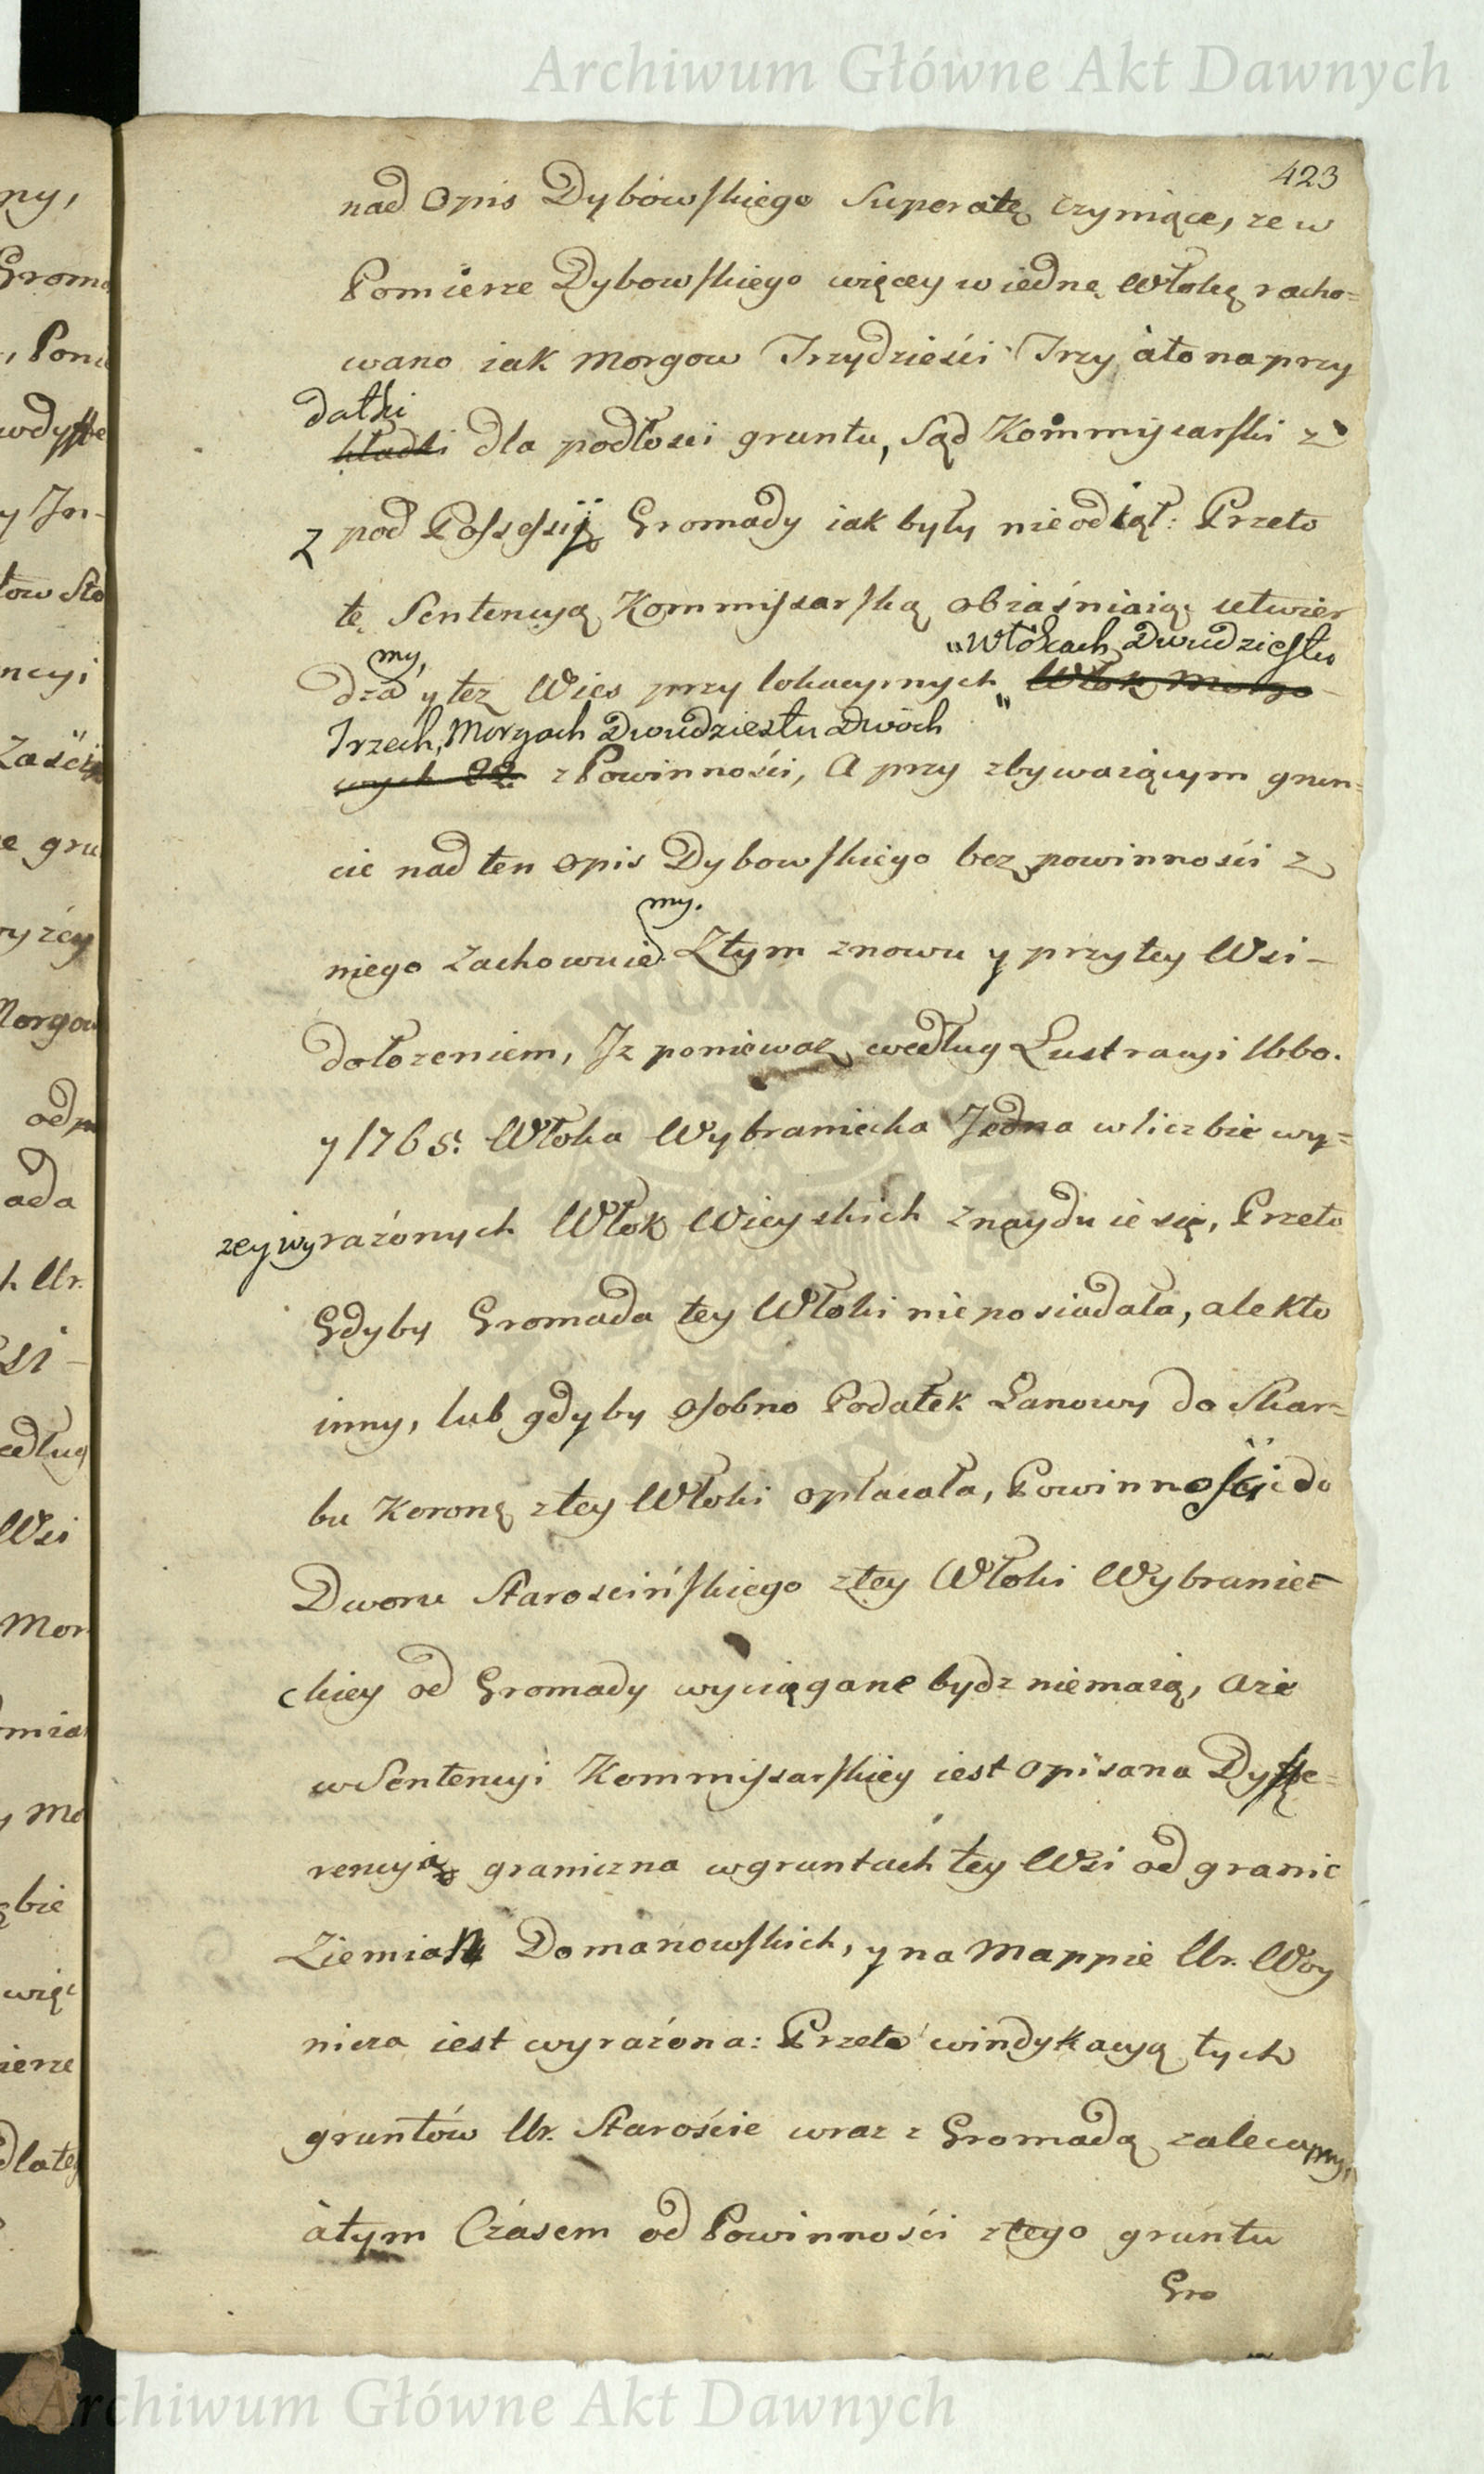 Archiwum Główne Akt Dawnych
423
nad Opis Dybowskiego Superatę czyniące, ze w
Pomierze Dybowskiego więcey w iednę Włokę racho=
wano iak Morgow Trzydzieści Trzy àto na przy
datki
kładki dla podłosci gruntu, Sąd Kommissarski z
z pod Possessyi Gromady iak były nieodiął: Przeto
tę Sentencyą Kommissarską obiaśniaiąc utwier
my, „Włókach Dwudziestu
dza y też Wies przy lokacyinych Włok Morgo
Trzech, Morgach Dwudziestu Dwóch "
wych 22. z Powinności, A przy zbywaiącym grun=
cie nad ten Opis Dybowskiego bez powinności z
my.
niego zachowuie Ztym znowu y przy tey Wsi -
dołożeniem, Iz poniewaz według Lustracyi 1660.
y 1765. Włoka Wybraniecka Jedna w liczbie wy=
zey wyrażonych Włok Wieyskich znayduie się, Przeto
Gdyby Gromada tey Włoki nieposiadała, ale kto
inny, lub gdyby osobno Podatek Łanowy do Skar=
bu Koroną z tey Włoki opłacała, Powinności do
Dworu Starościńskiego z tey Włoki Wybranie=
ckiey od Gromady wyciągane bydz niemaią, Aże
w Sentencyi Kommissarskiey iest opisana Dyffe=
rencya graniczna w gruntach tey Wsi od granic
Ziemian Domanowskich, y na Mappie Ur. Woy
nicza iest wyrażona: Przeto windykacyą tych
gruntów Ur. Staroście wraz z Gromadą zalecamy,
àtym Czásem od Powinności z tego gruntu
Gro
ny,
Grom
, Pom
wdyffe
y In-
tow Sto
ncyi
Zaści
e gru
yżey
Morgow
od
ada
h Ur.
Wsi -
według
Wsi
Mor
mia
y Mo
bie
więc
ierze
dlatey
Archiwum Główne Akt Dawnych